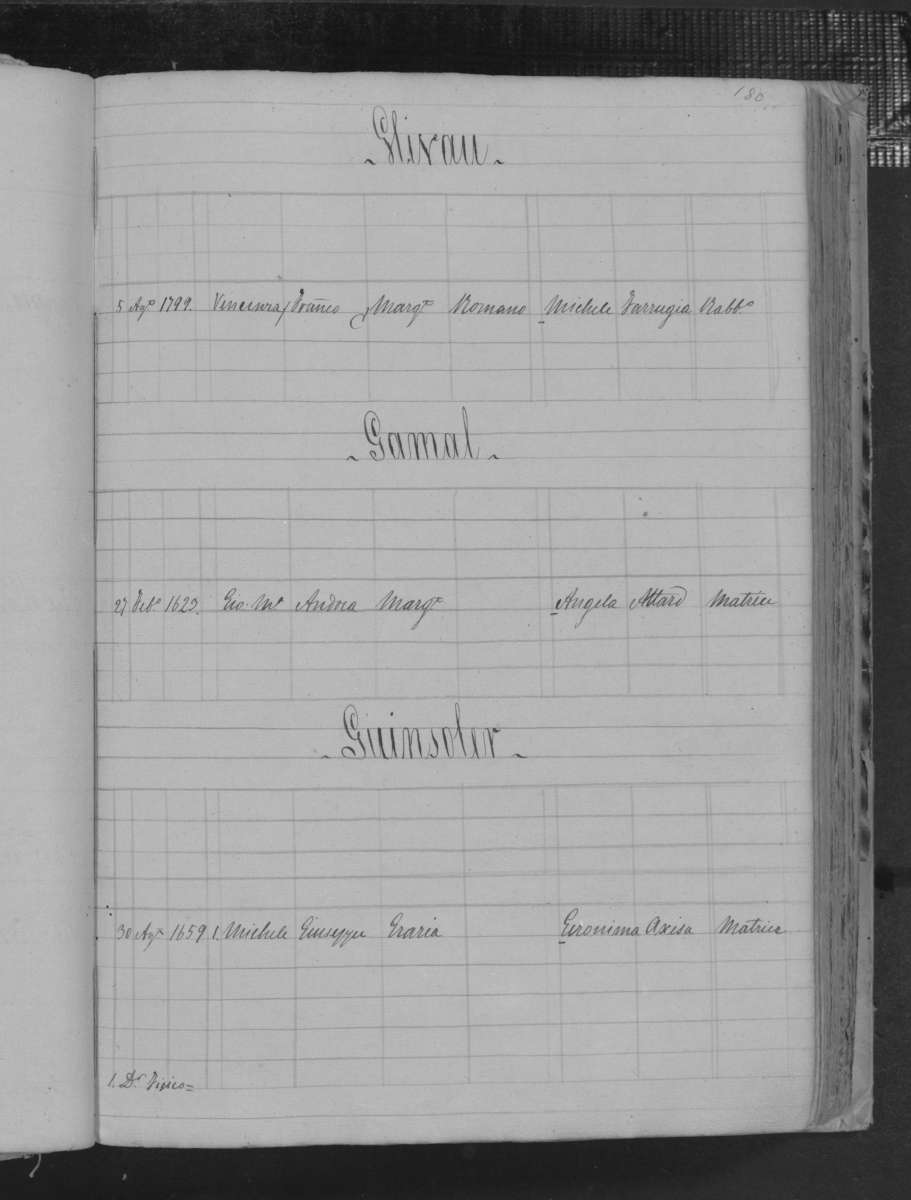 180
~ Glivau ~
5 Agº 1799. Vincenza / Franco Margta Romano Michele Farrugia Rabbº
~ Gamal ~
27 Febº 1623. Gio. Mª Andrea Margta Angela Attard Matrice
~ Guinsoler ~
30 Agº 1659. 1. Michele Giuseppe Grazia Geronima Axisa Matrice
1. Dr. Fisico =